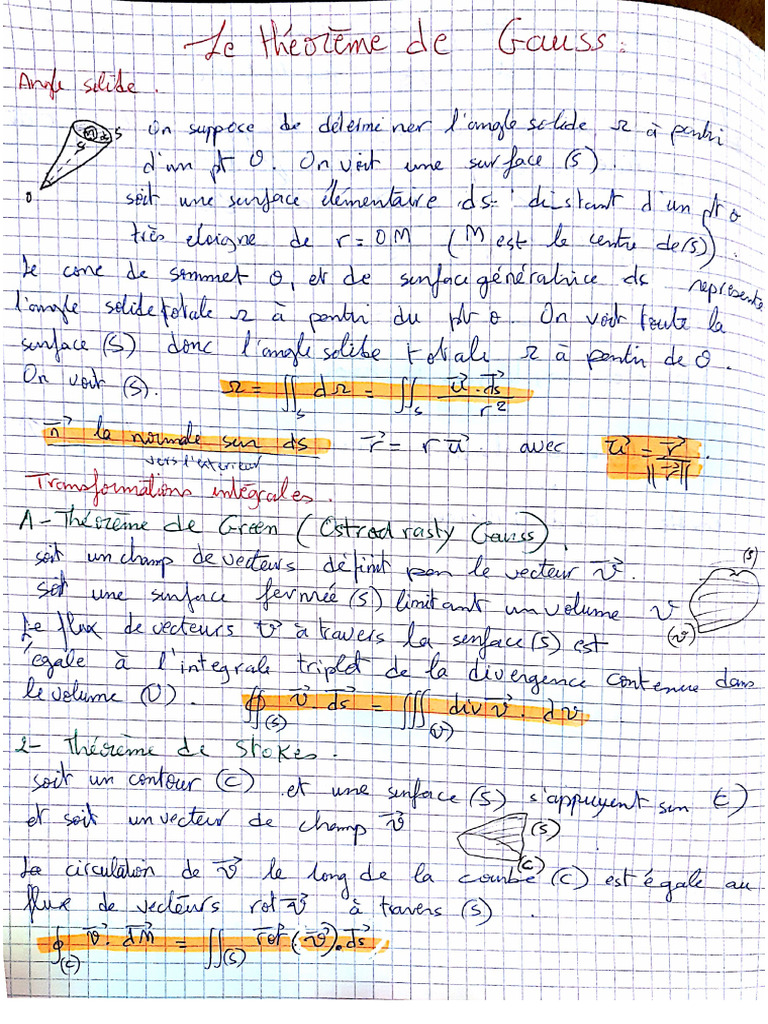 Le théorème de Gauss.
Angle solide.
On suppose de déterminer l'angle solide Ω à partir
d'un pt O. On voit une surface (S).
soit une surface élémentaire ds distant d'un pt O
très éloigne de r = OM (M est le centre de (S)).
Le cone de sommet O, et de surface génératrice ds represente
l'angle solide totale Ω à partir du pt O. On voit toute la
surface (S) donc l'angle solide totale Ω à partir de O.
On voit (S). Ω = ∬_S dΩ = ∬_S (u⃗ . ds⃗) / r²
n⃗ la normale sur ds r⃗ = r u⃗. avec u⃗ = r⃗ / ||r⃗||.
vers l'exterieur
Transformations intégrales.
A - Théorème de Green (Ostrodrasty Gauss).
soit un champ de vecteurs définit par le vecteur v⃗.
soit une surface fermée (S) limitant un volume V
Le flux de vecteurs v⃗ à travers la surface (S) est
égale à l'integrale triplet de la divergence contenue dans
le volume (V). ∯_(S) v⃗ . ds⃗ = ∭_(V) div v⃗ . dv
2 - Théorème de Stokes.
soit un contour (C) et une surface (S) s'appuyent sur C)
et soit un vecteur de champ v⃗
La circulation de v⃗ le long de la courbe (C) est égale au
flux de vecteurs rot v⃗ à travers (S).
∮_(C) v⃗ . dM⃗ = ∬_(S) rot⃗ (v⃗) . ds⃗
O
M
S
(S)
(V)
(S)
(C)